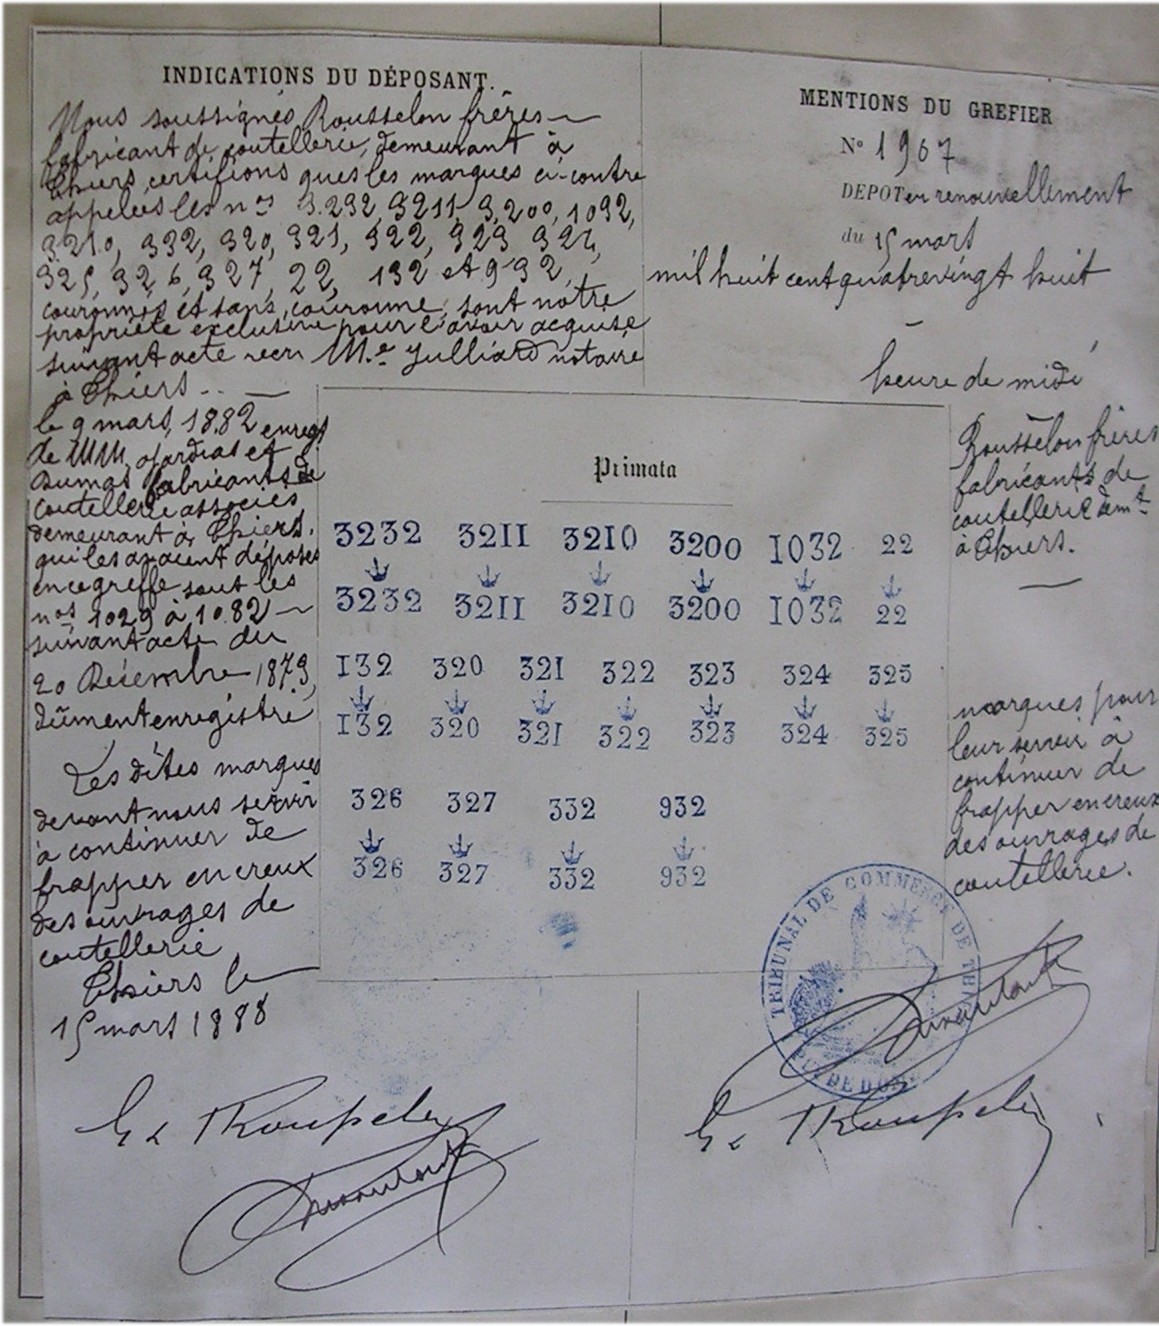 INDICATIONS DU DÉPOSANT.
Nous soussignés Rousselon frères
fabricant de coutellerie, demeurant à
Thiers, certifions ques les marques ci-contre
appelées les nos 3.232, 3211, 3,200, 1032,
3.210, 332, 320, 321, 322, 323 324,
325, 326, 327, 22, 132 et 932,
couronnés et sans couronne, sont notre
propriété exclusive pour l'avoir acquise
suivant acte recu Me Julliard notaire
à Thiers
le 9 mars, 1882 enregt
de MM. ojardias et
Dumas fabricants de
coutellerie associés
demeurant à Thiers.
qui les avaient déposés
en ce greffe sout les
nos 1029 à 1082
suivant acte du
20 Désembre 1879,
dûment enregistré
Les dites marques
devant nous servir
à continuer de
frapper en creux
des ouvrages de
coutellerie
Thiers le
15 mars 1888
MENTIONS DU GREFIER
No 1967
DEPOT en renouvellement
du 15 mars
mil huit cent quatrevingt huit
heure de midi
Rousselon frères
fabricants de
coutellerie demt
à Thiers.
marques pour
leur servir à
continuer de
frapper en creux
des ouvrages de
coutellerie.
Primata
3232 3211 3210 3200 1032 22
3232 3211 3210 3200 1032 22
132 320 321 322 323 324 325
132 320 321 322 323 324 325
326 327 332 932
326 327 332 932
TRIBUNAL DE COMMERCE DE
PUY DE DOME